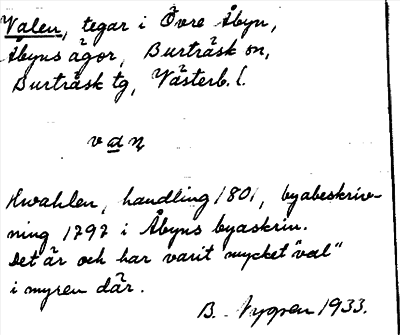 Valen, tegar i Övre Åbyn,
Åbyns ägor, Burträsk sn,
Burträsk tg, Västerb. l.
Hwahlen, handling 1801, byabeskriv-
ning 1797 i Åbyns byaskrin.
Det är och har varit mycket "val"
i myren där.
B. Nygren 1933.